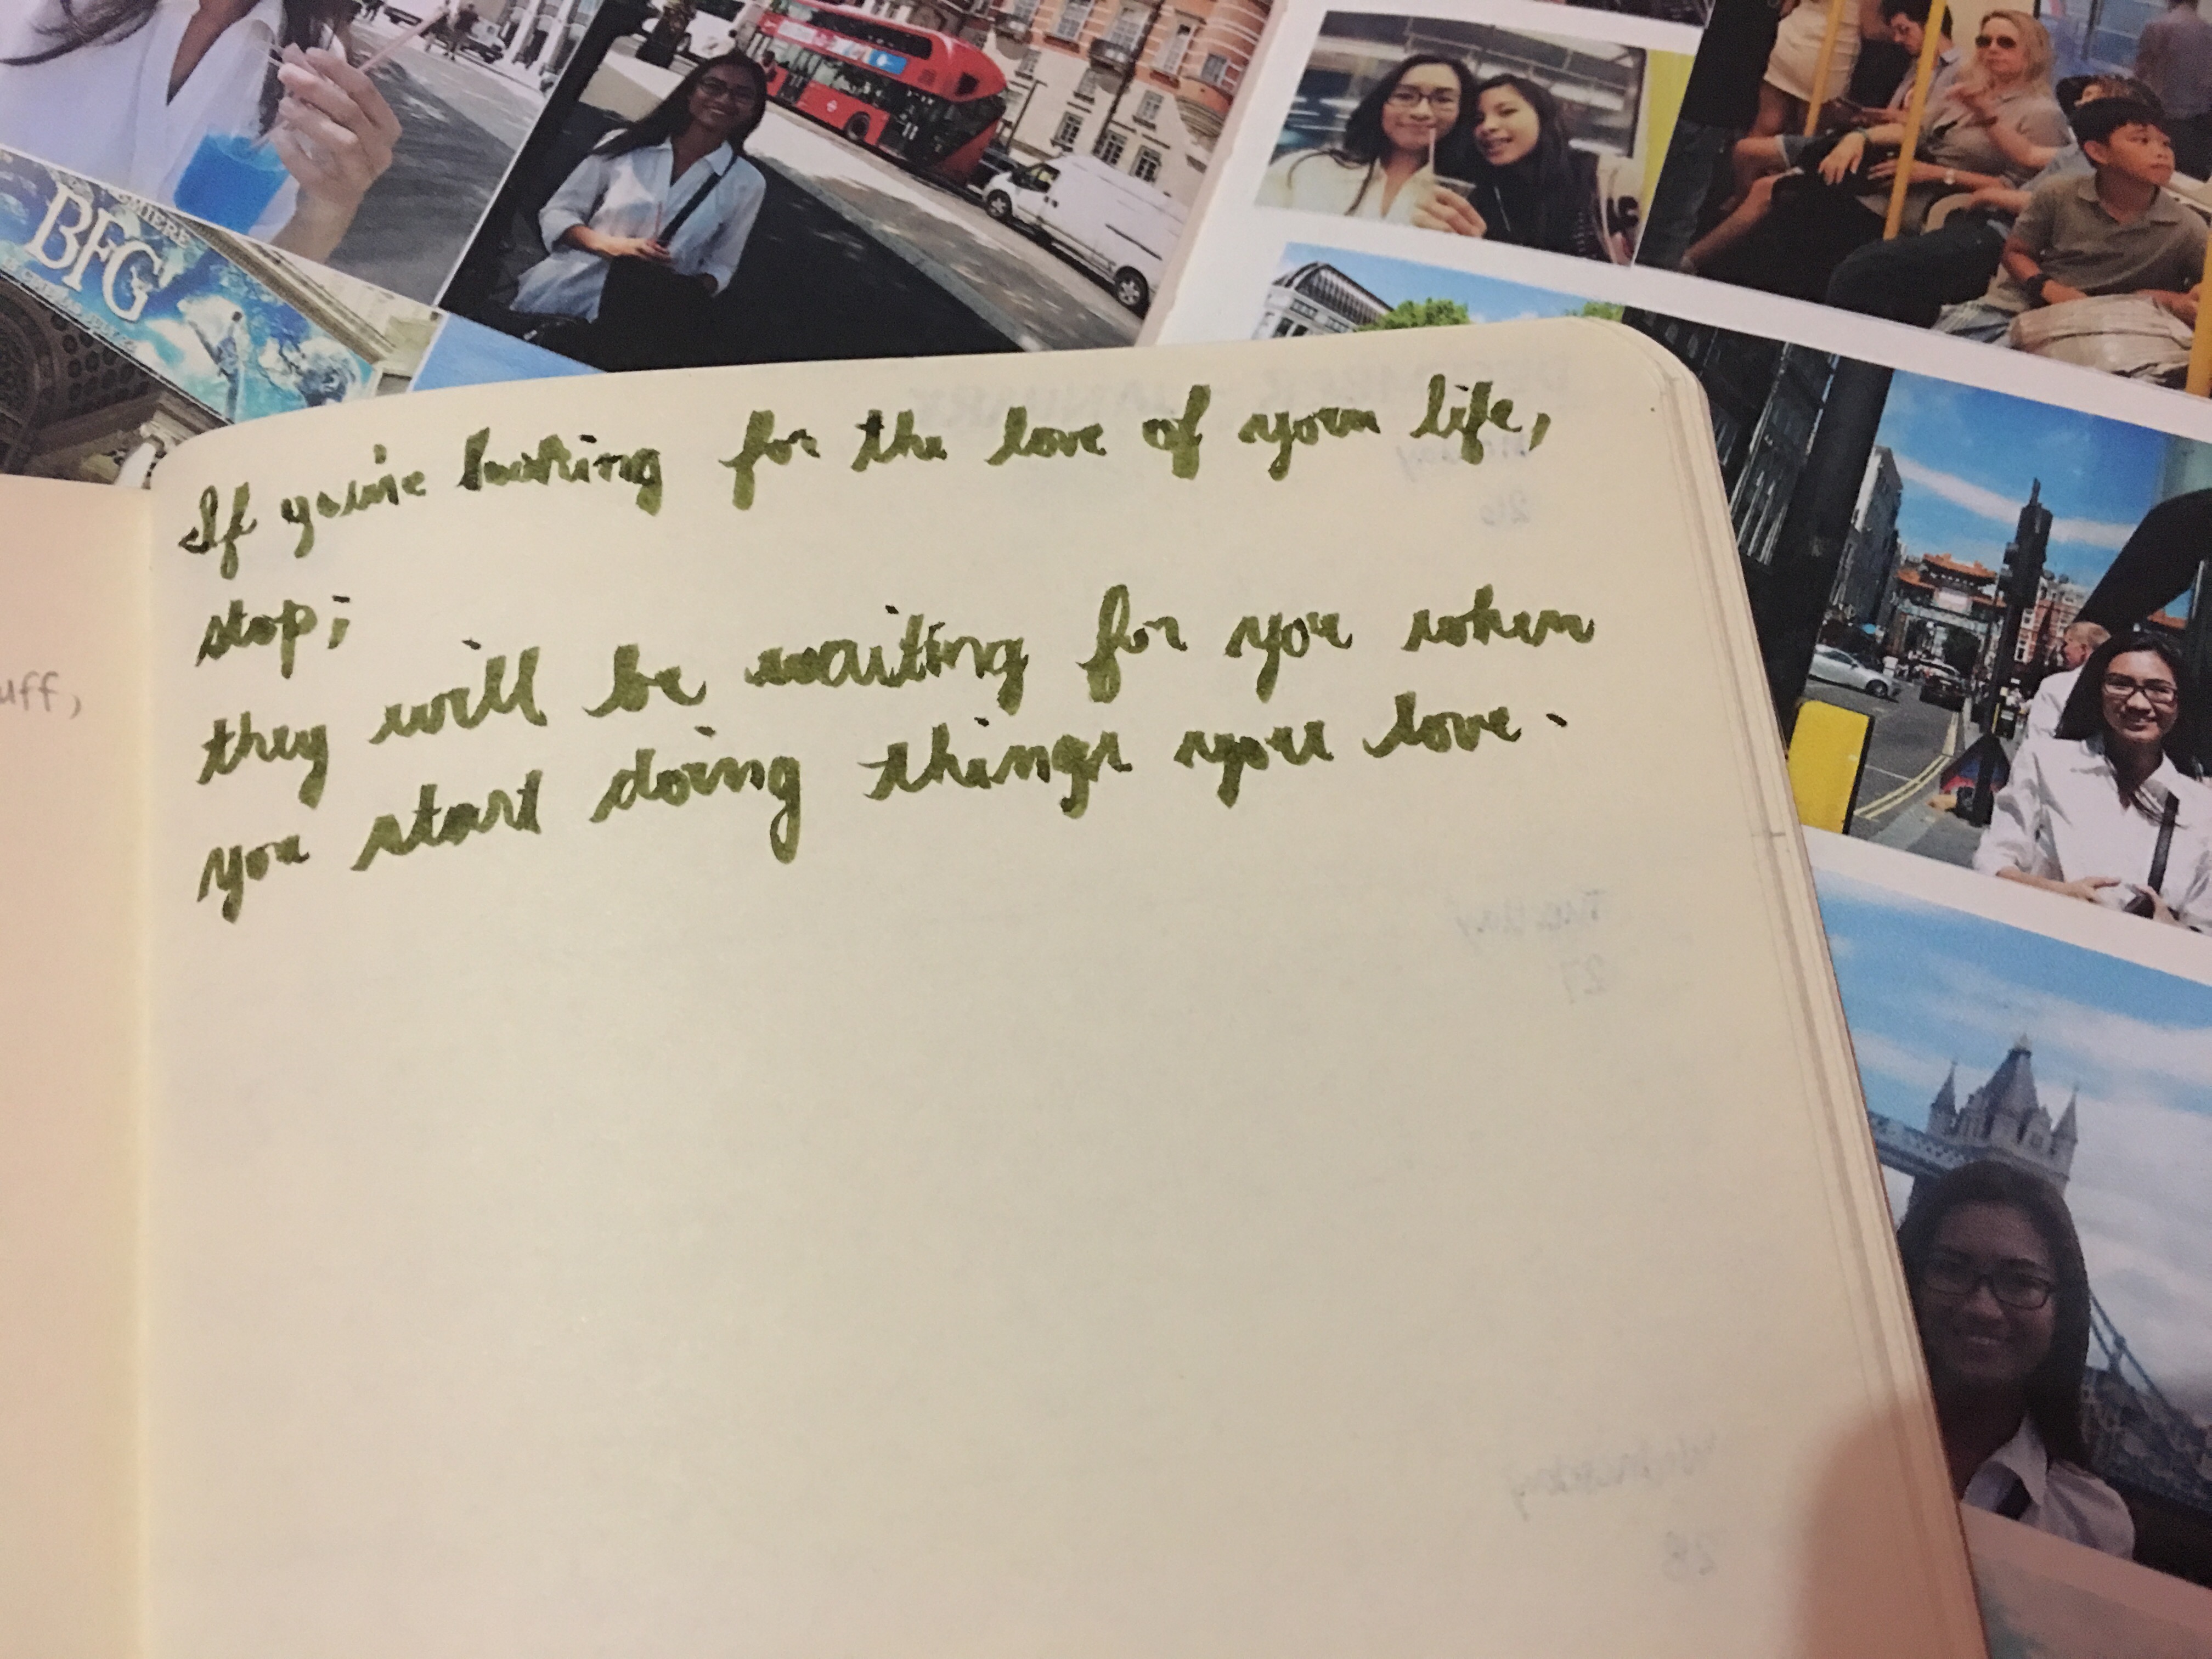 PREMIERE
BFG
uff,
If you're looking for the love of your life,
stop;
they will be waiting for you when
you start doing things you love.
DECEMBER - JANUARY
Monday
26
Tuesday
27
Wednesday
28